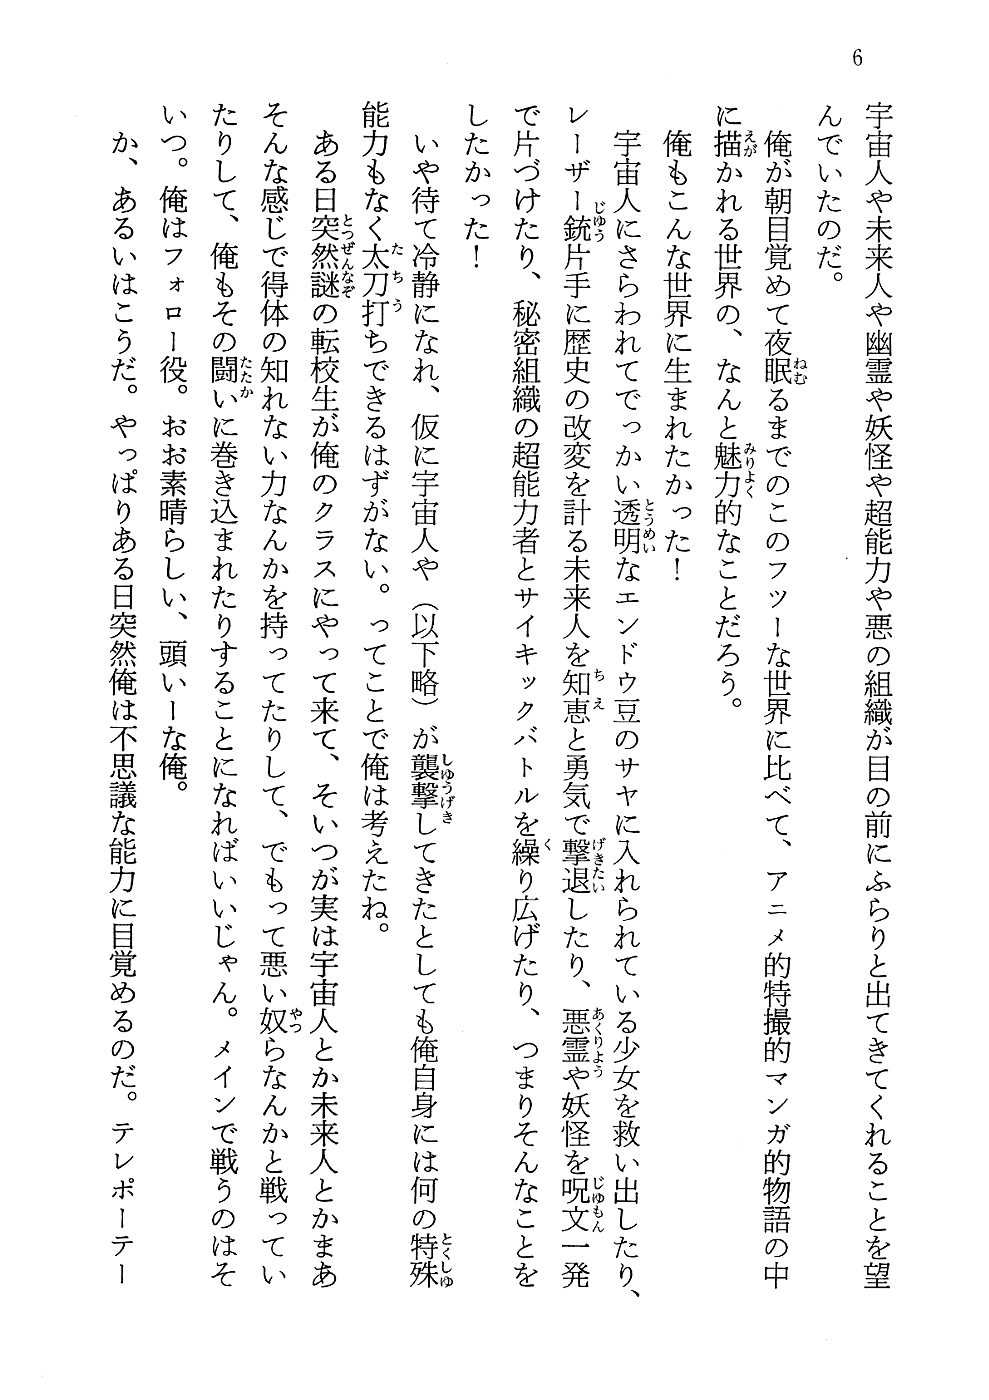 6
宇宙人や未来人や幽霊や妖怪や超能力や悪の組織が目の前にふらりと出てきてくれることを望
んでいたのだ。
俺が朝目覚めて夜眠るまでのこのフツーな世界に比べて、アニメ的特撮的マンガ的物語の中
に描かれる世界の、なんと魅力的なことだろう。
俺もこんな世界に生まれたかった！
宇宙人にさらわれてでっかい透明なエンドウ豆のサヤに入れられている少女を救い出したり、
レーザー銃片手に歴史の改変を計る未来人を知恵と勇気で撃退したり、悪霊や妖怪を呪文一発
で片づけたり、秘密組織の超能力者とサイキックバトルを繰り広げたり、つまりそんなことを
したかった！
いや待て冷静になれ、仮に宇宙人や（以下略）が襲撃してきたとしても俺自身には何の特殊
能力もなく太刀打ちできるはずがない。ってことで俺は考えたね。
ある日突然謎の転校生が俺のクラスにやって来て、そいつが実は宇宙人とか未来人とかまあ
そんな感じで得体の知れない力なんかを持ってたりして、でもって悪い奴らなんかと戦ってい
たりして、俺もその闘いに巻き込まれたりすることになればいいじゃん。メインで戦うのはそ
いつ。俺はフォロー役。おお素晴らしい、頭いーな俺。
か、あるいはこうだ。やっぱりある日突然俺は不思議な能力に目覚めるのだ。テレポーテー